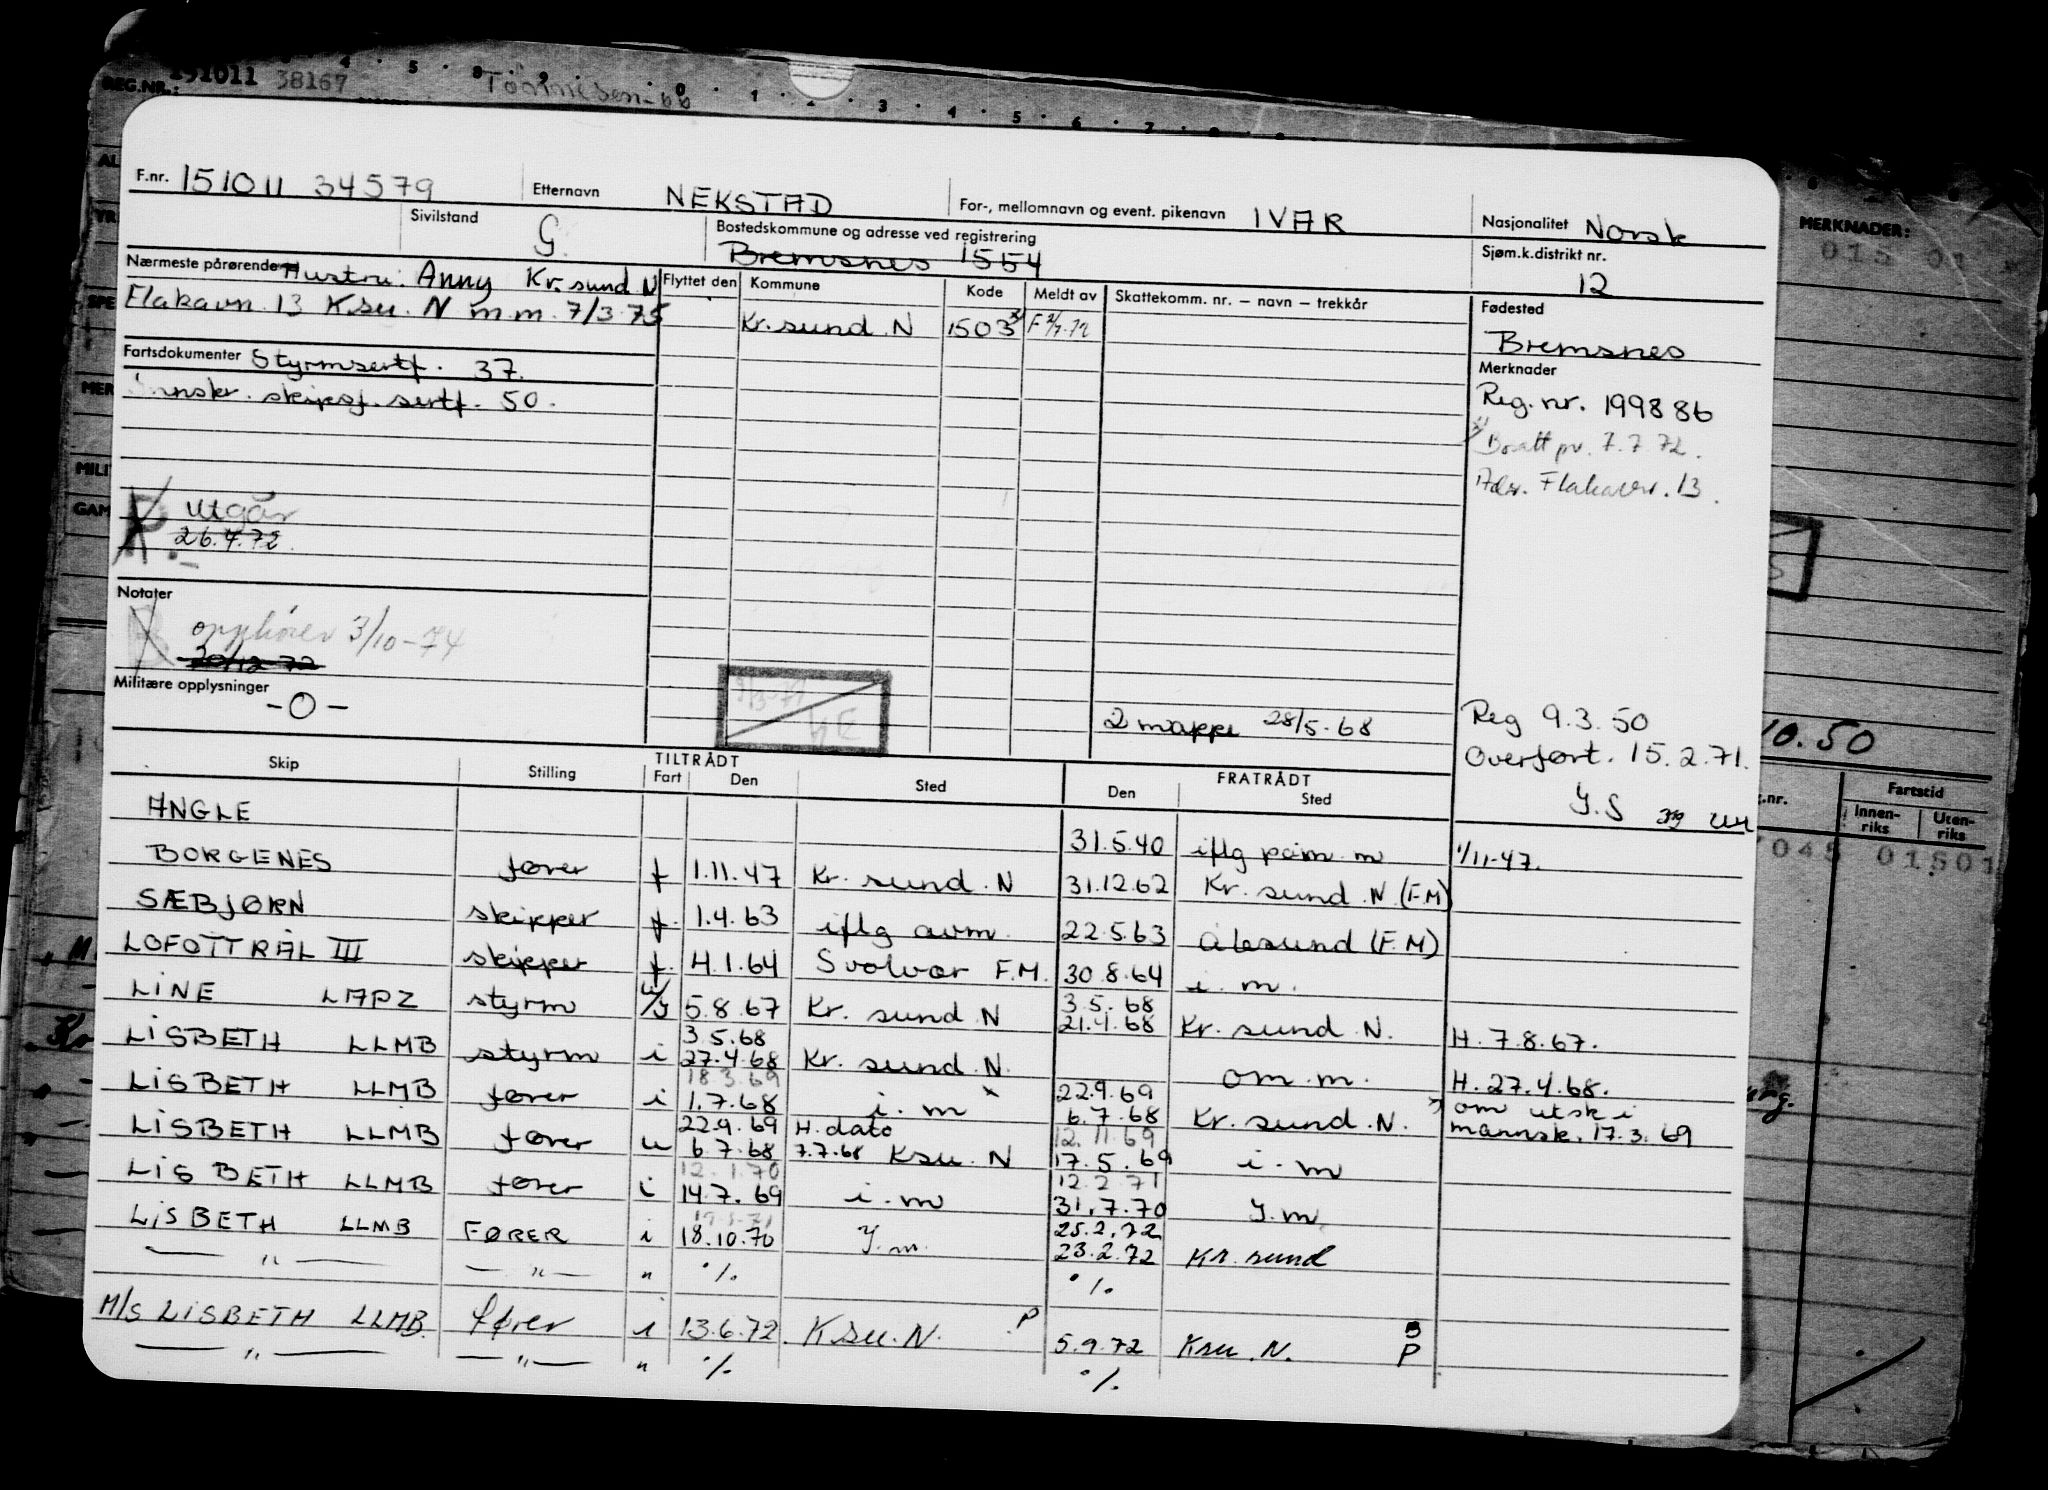 REG.NR.: 151011 38167
MERKNADER:
F.nr. 151011 34579 Etternavn NEKSTAD For-, mellomnavn og event. pikenavn IVAR Nasjonalitet Norsk
Sivilstand G. Bostedskommune og adresse ved registrering Bremsnes 1554 Sjøm.k.distrikt nr. 12
Nærmeste pårørende Hustru: Anny Kr.sund N
Flakavn. 13 Ksu. N m.m. 7/3.75
Flyttet den Kommune Kode Meldt av Skattekomm. nr. – navn – trekkår Fødested
Kr.sund N 1503 Bremsnes
Fartsdokumenter Styrmsertf. 37.
skipsf. sertf. 50.
Merknader
Reg.nr. 199886
Bosatt pr. 7.7.72.
Adr. Flakavn. 13.
Utgår
26.4.72.
Notater
opphører 3/10-74
20/12-72
Militære opplysninger
-0-
2 mappe 28/5-68
Reg 9.3.50
Overført. 15.2.71.
10.50
Skip Stilling TILTRÅDT Fart Den Sted FRATRÅDT Den Sted
Fartstid
Innen-riks Uten-riks
ANGLE 31.5.40 iflg påm. m 1/11-47.
BORGENES fører f 1.11.47 Kr. sund. N 31.12.62 Kr. sund. N (F.M)
SÆBJØRN skipper f. 1.4.63 iflg avm. 22.5.63 Ålesund (F.M)
LOFOTTRÅL III skipper f. 4.1.64 Svolvær F.M. 30.8.64 i. m.
LINE LAPZ styrm 5.8.67 Kr. sund N 3.5.68 21.4.68 Kr. sund N. H. 7.8.67.
LISBETH LLMB styrm i 3.5.68 27.4.68 Kr. sund N. om. m. H. 27.4.68.
LISBETH LLMB fører i 18.3.69 1.7.68 i. m x 22.9.69 6.7.68 Kr. sund. N. om utsk i mannsk. 17.3.69
LISBETH LLMB fører u 22.9.69 6.7.68 H. dato 7.7.68 Ksu. N 12.11.69 17.5.69 i. m
LISBETH LLMB fører i 12.1.70 14.7.69 i. m 12.2.71 31.7.70 Y.m.
LISBETH LLMB FØRER i 18.10.70 Y.m. 25.2.72 23.2.72 Kr. sund
— " — — " — " %. %.
M/S LISBETH LLMB. fører i 13.6.72 Ksu. N. P 5.9.72 Ksu. N. P
— " — — " — " %. %.